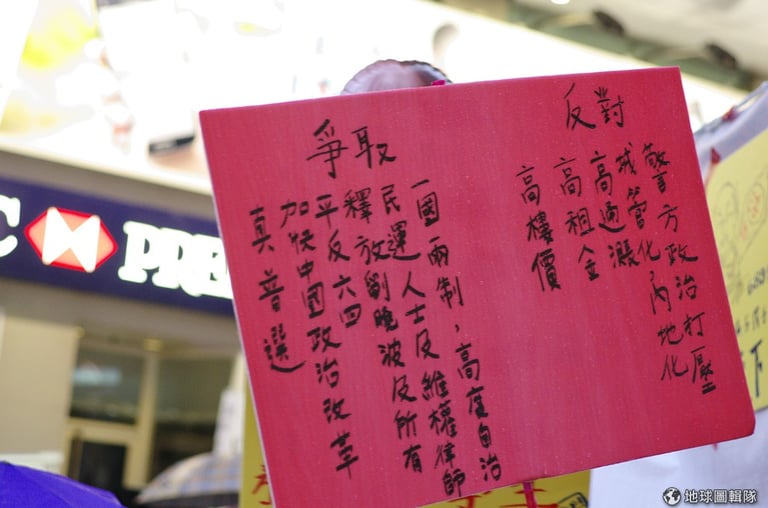 爭取
真普選
加快中國政治改革
平反六四
釋放劉曉波及所有
民運人士及維權律師
一國兩制，高度自治
反對
高樓價
高租金
高通漲
城管化、內地化
警方政治打壓
C PRE
下
地球圖輯隊